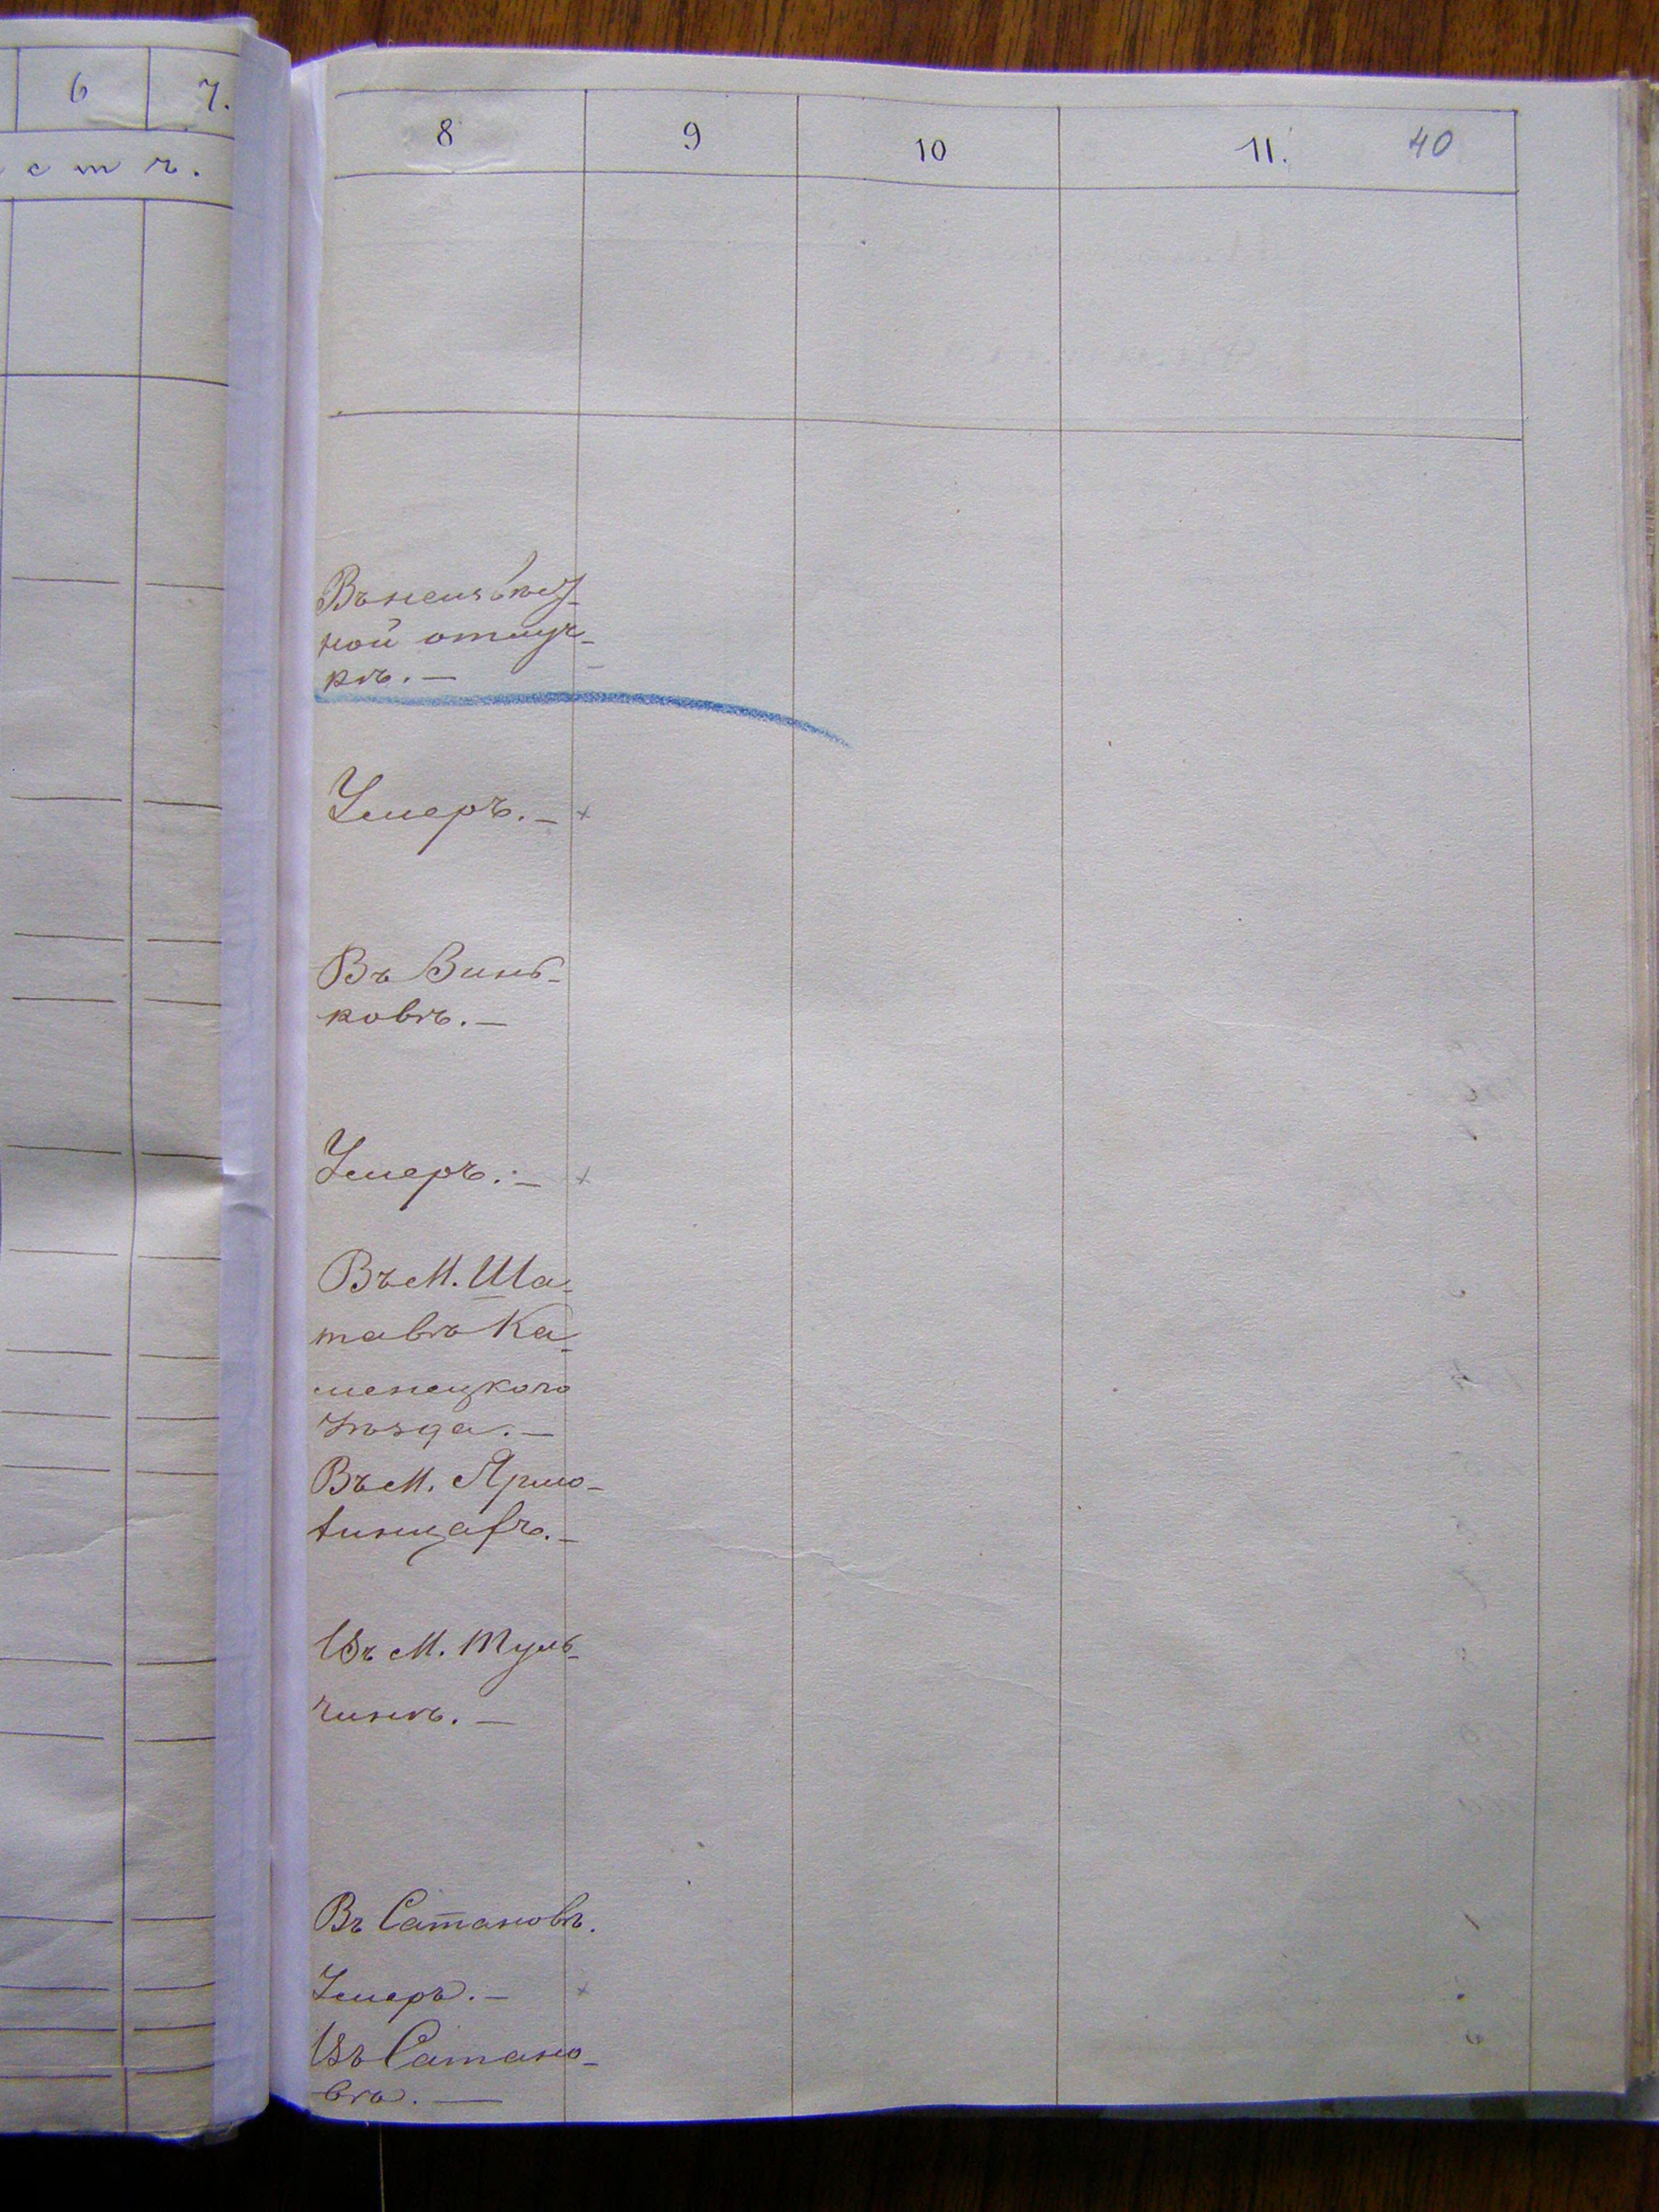 6 7.
с т ь.
8 9 10 11. 40
Въ неизвѣст-
ной отлуч-
кѣ. —
Умеръ. — +
Въ Винь-
ковѣ. —
Умеръ. — +
Въ М. Ша-
тавѣ Ка-
менецкого
уѣзда. —
Въ М. Ярмо-
линцахъ. —
Въ М. Туль-
чинѣ. —
Въ Сатановѣ.
Умеръ. — +
Въ Сатано-
вѣ. —